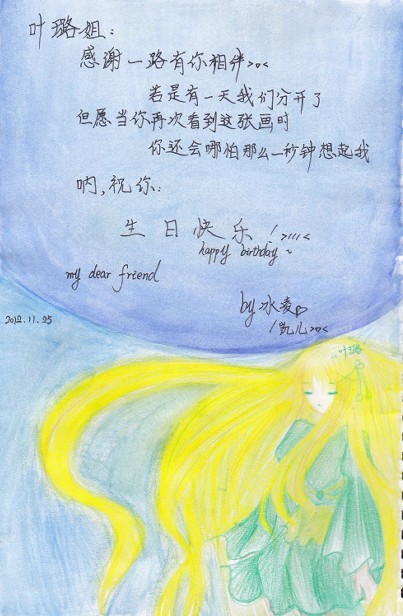 叶璐姐：
感谢一路有你相伴>▽<
若是有一天我们分开了
但愿当你再次看到这张画时
你还会哪怕那么一秒钟想起我
呐，祝你：
生日快乐 />////<
happy birthday ~
my dear friend
by 冰凌
/凯儿>▽<
2012.11.25
叶璐